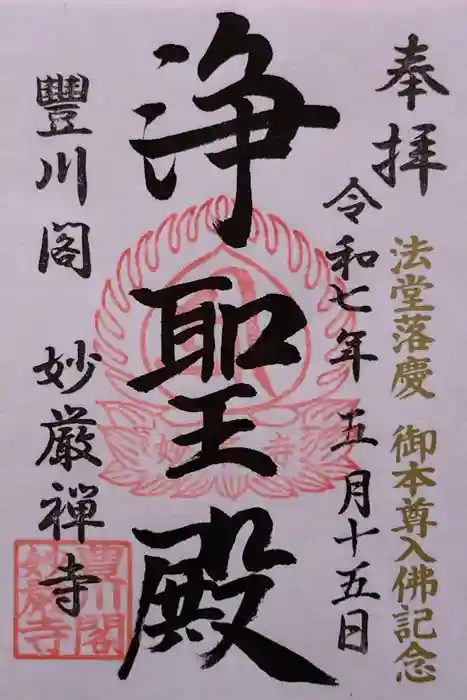 奉拝
法堂落慶 御本尊入佛記念
令和七年 五月十五日
浄聖殿
豐川閣 妙厳禅寺
豐川閣
妙嚴寺